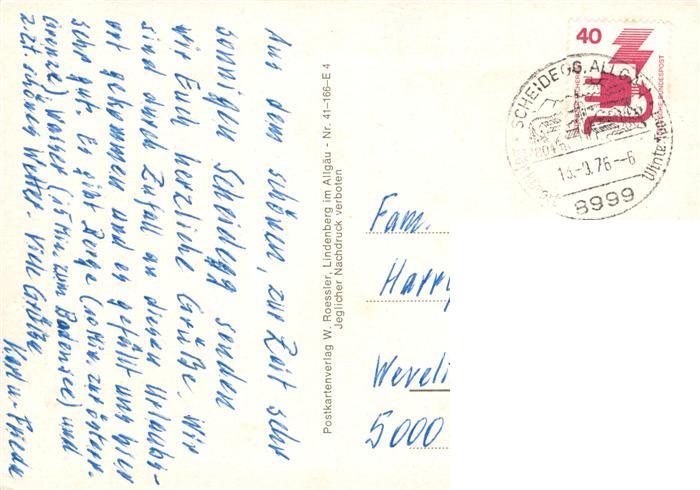 Aus dem schönen, zur Zeit sehr
sonnigen Scheidegg senden
wir Euch herzliche Grüße. Wir
sind durch Zufall an diesen Urlaubs-
ort gekommen und es gefällt uns hier
sehr gut. Es gibt Berge (10 Min. zur österr.
Grenze), Wasser (15 Min. zum Bodensee) und
z.Zt. schönes Wetter. Viele Grüße
Karl u.
Postkartenverlag W. Roessler, Lindenberg im Allgäu - Nr. 41-166-E 4
Jeglicher Nachdruck verboten
40
DEUTSCHE BUNDESPOST
SCHEIDEGG, ALLGÄU
-9.76--6
8999
Fam.
Harry
5000